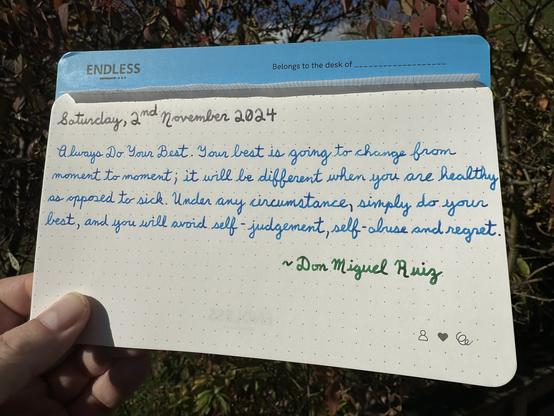 ENDLESS
Belongs to the desk of
Saturday, 2nd November 2024
Always Do Your Best. Your best is going to change from
moment to moment; it will be different when you are healthy
as opposed to sick. Under any circumstance, simply do your
best, and you will avoid self-judgement, self-abuse and regret.
~ Don Miguel Ruiz